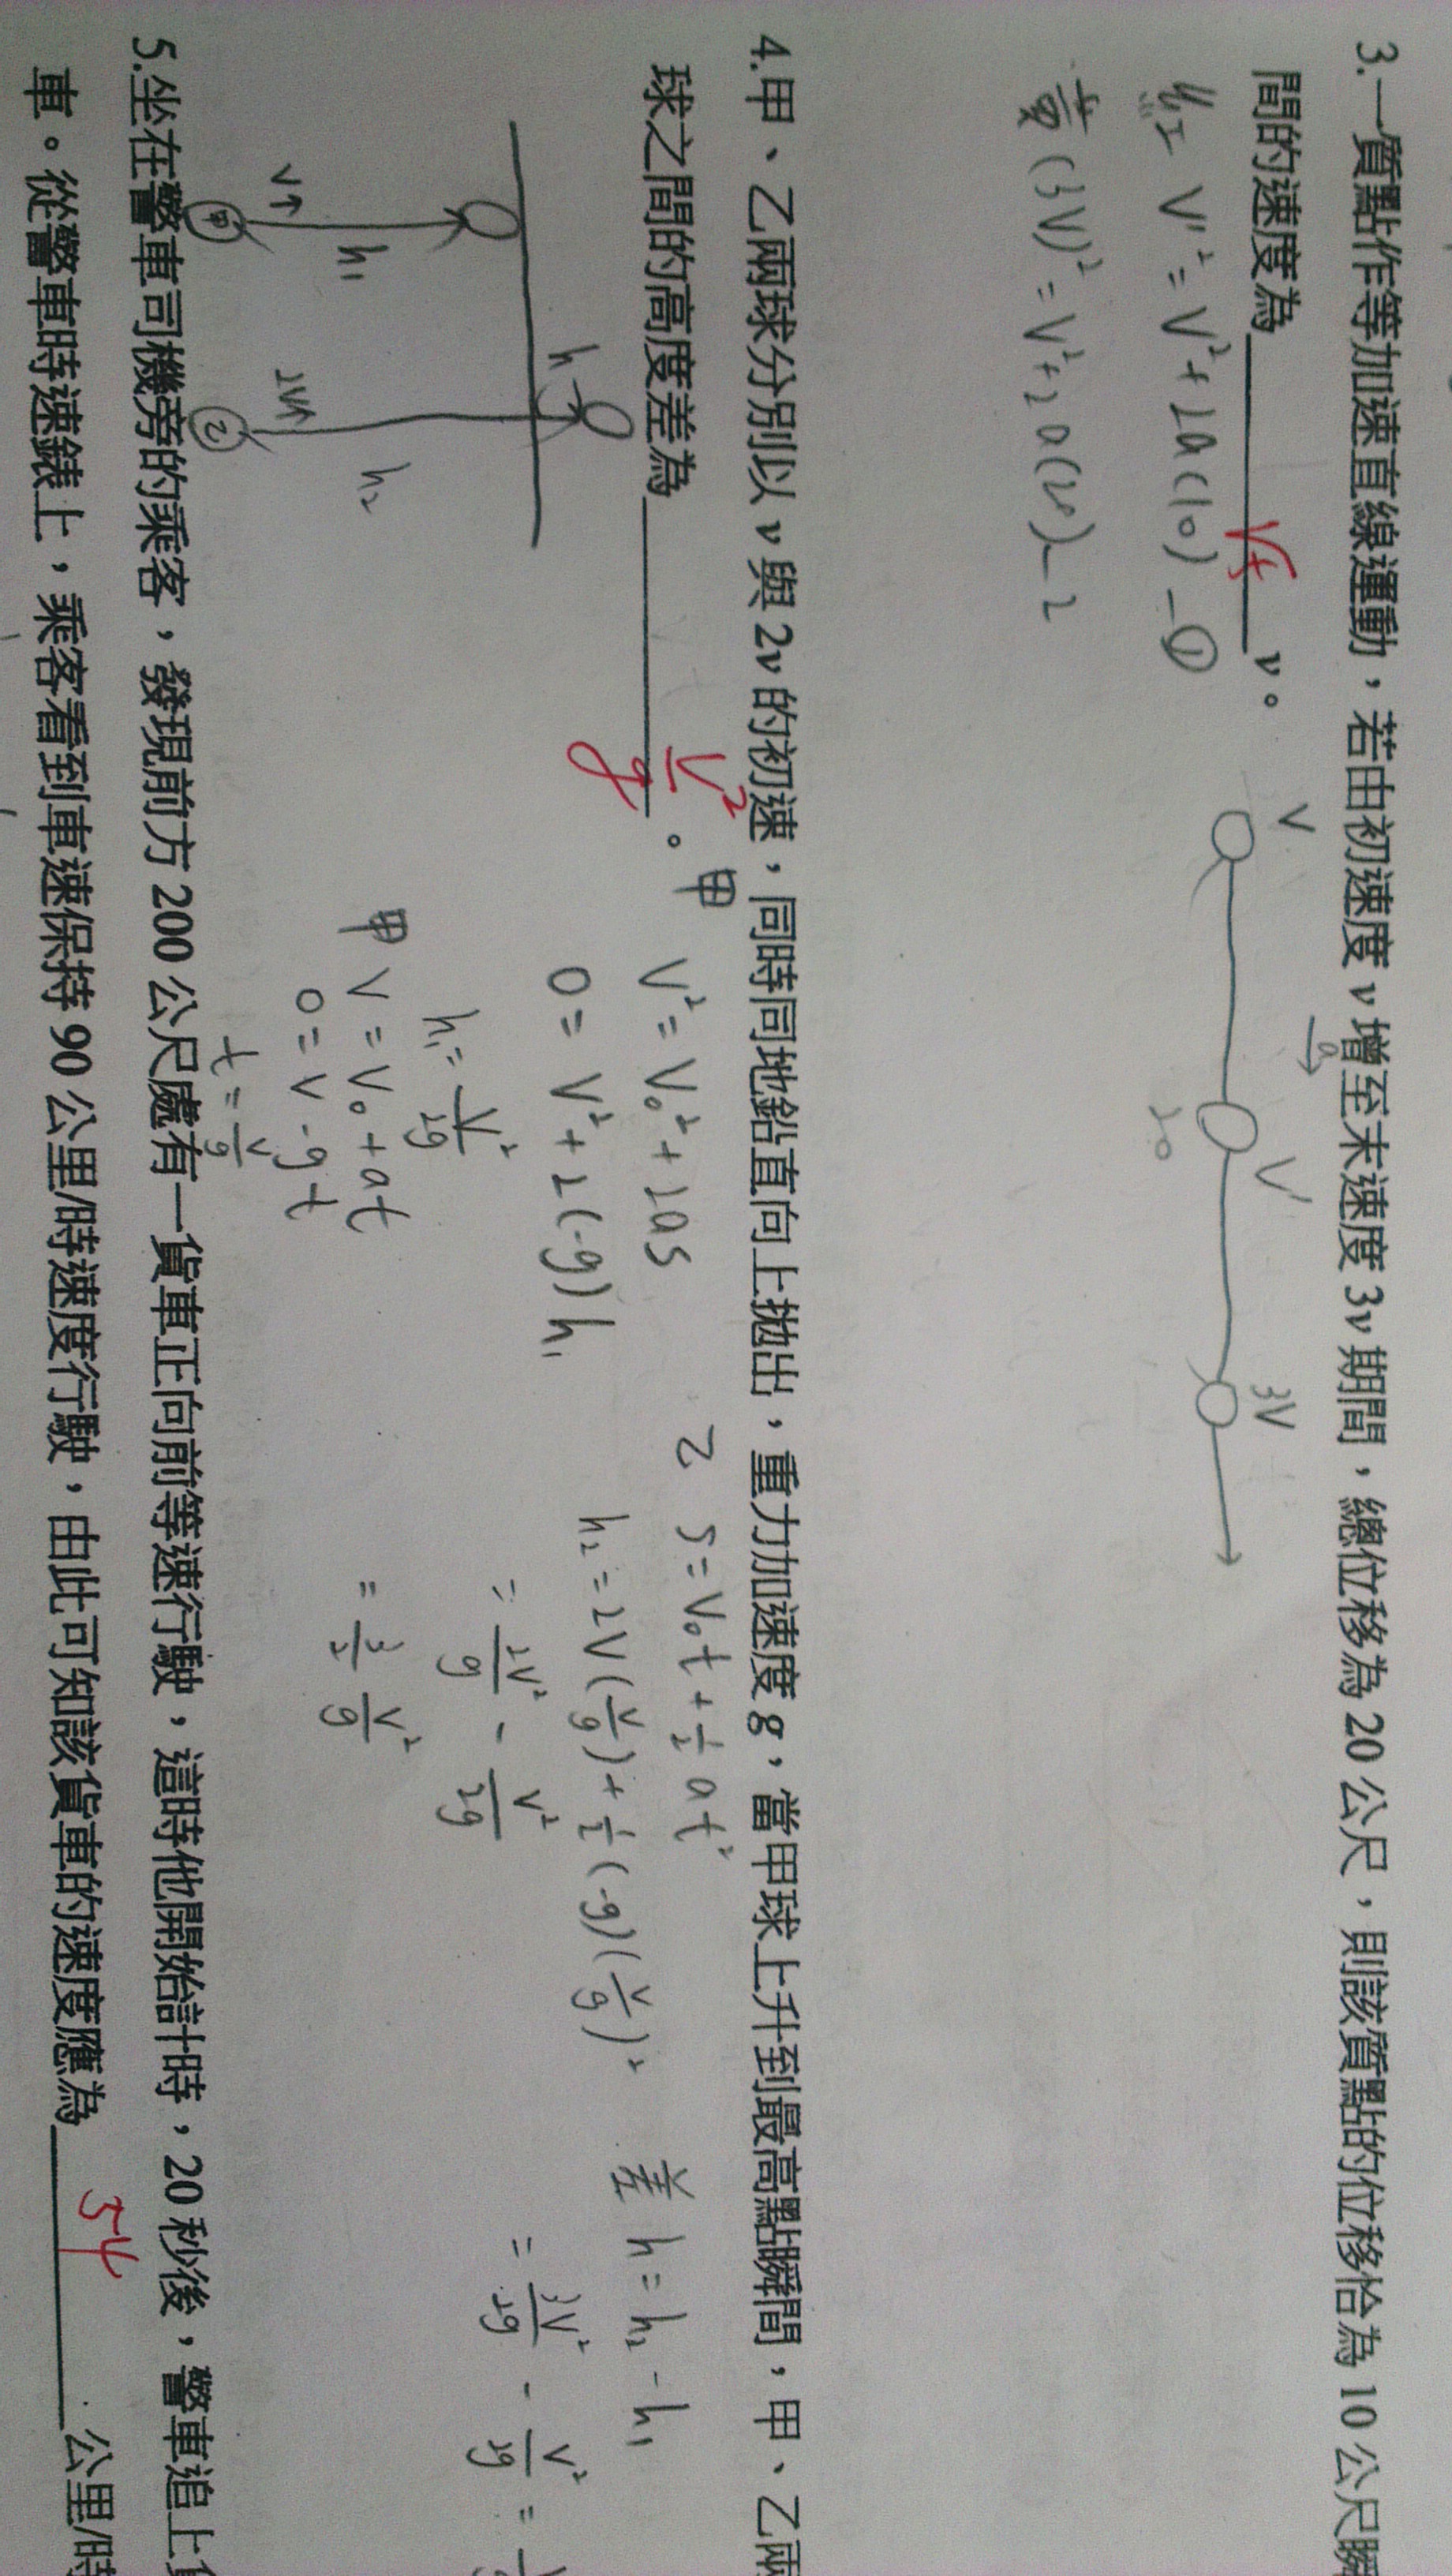 3.一質點作等加速直線運動，若由初速度 v 增至末速度 3v 期間，總位移為 20 公尺，則該質點的位移恰為 10 公尺瞬
間的速度為 √5 v。
V a V' 3V
20
V'² = V² + 2a(10) —①
(3V)² = V² + 2a(20) — 2
4.甲、乙兩球分別以 v 與 2v 的初速，同時同地鉛直向上拋出，重力加速度 g，當甲球上升到最高點瞬間，甲、乙兩
球之間的高度差為 V²/g 。
甲 V² = V₀² + 2as
0 = V² + 2(-g)h₁
h₁ = V²/2g
甲 V = V₀ + at
0 = V - gt
t = V/g
乙 S = V₀t + ½at²
h₂ = 2V(V/g) + ½(-g)(V/g)²
= 2V²/g - V²/2g
= 3/2 V²/g
差 h = h₂ - h₁
= 3V²/2g - V²/2g =
h
h₁ h₂
V↑ 2V↑
甲 乙
5.坐在警車司機旁的乘客，發現前方 200 公尺處有一貨車正向前等速行駛，這時他開始計時，20 秒後，警車追上
車。從警車時速錶上，乘客看到車速保持 90 公里/時速度行駛，由此可知該貨車的速度應為 54 公里/時